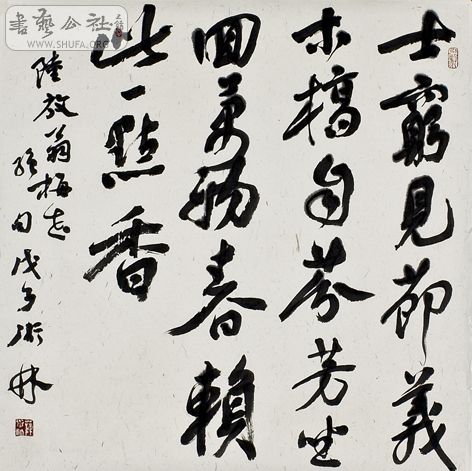 書藝公社
WWW.SHUFA.ORG
士窮見節義
木槁自芬芳坐
回萬物春賴
此一點香
陸放翁梅花
絕句戊子林